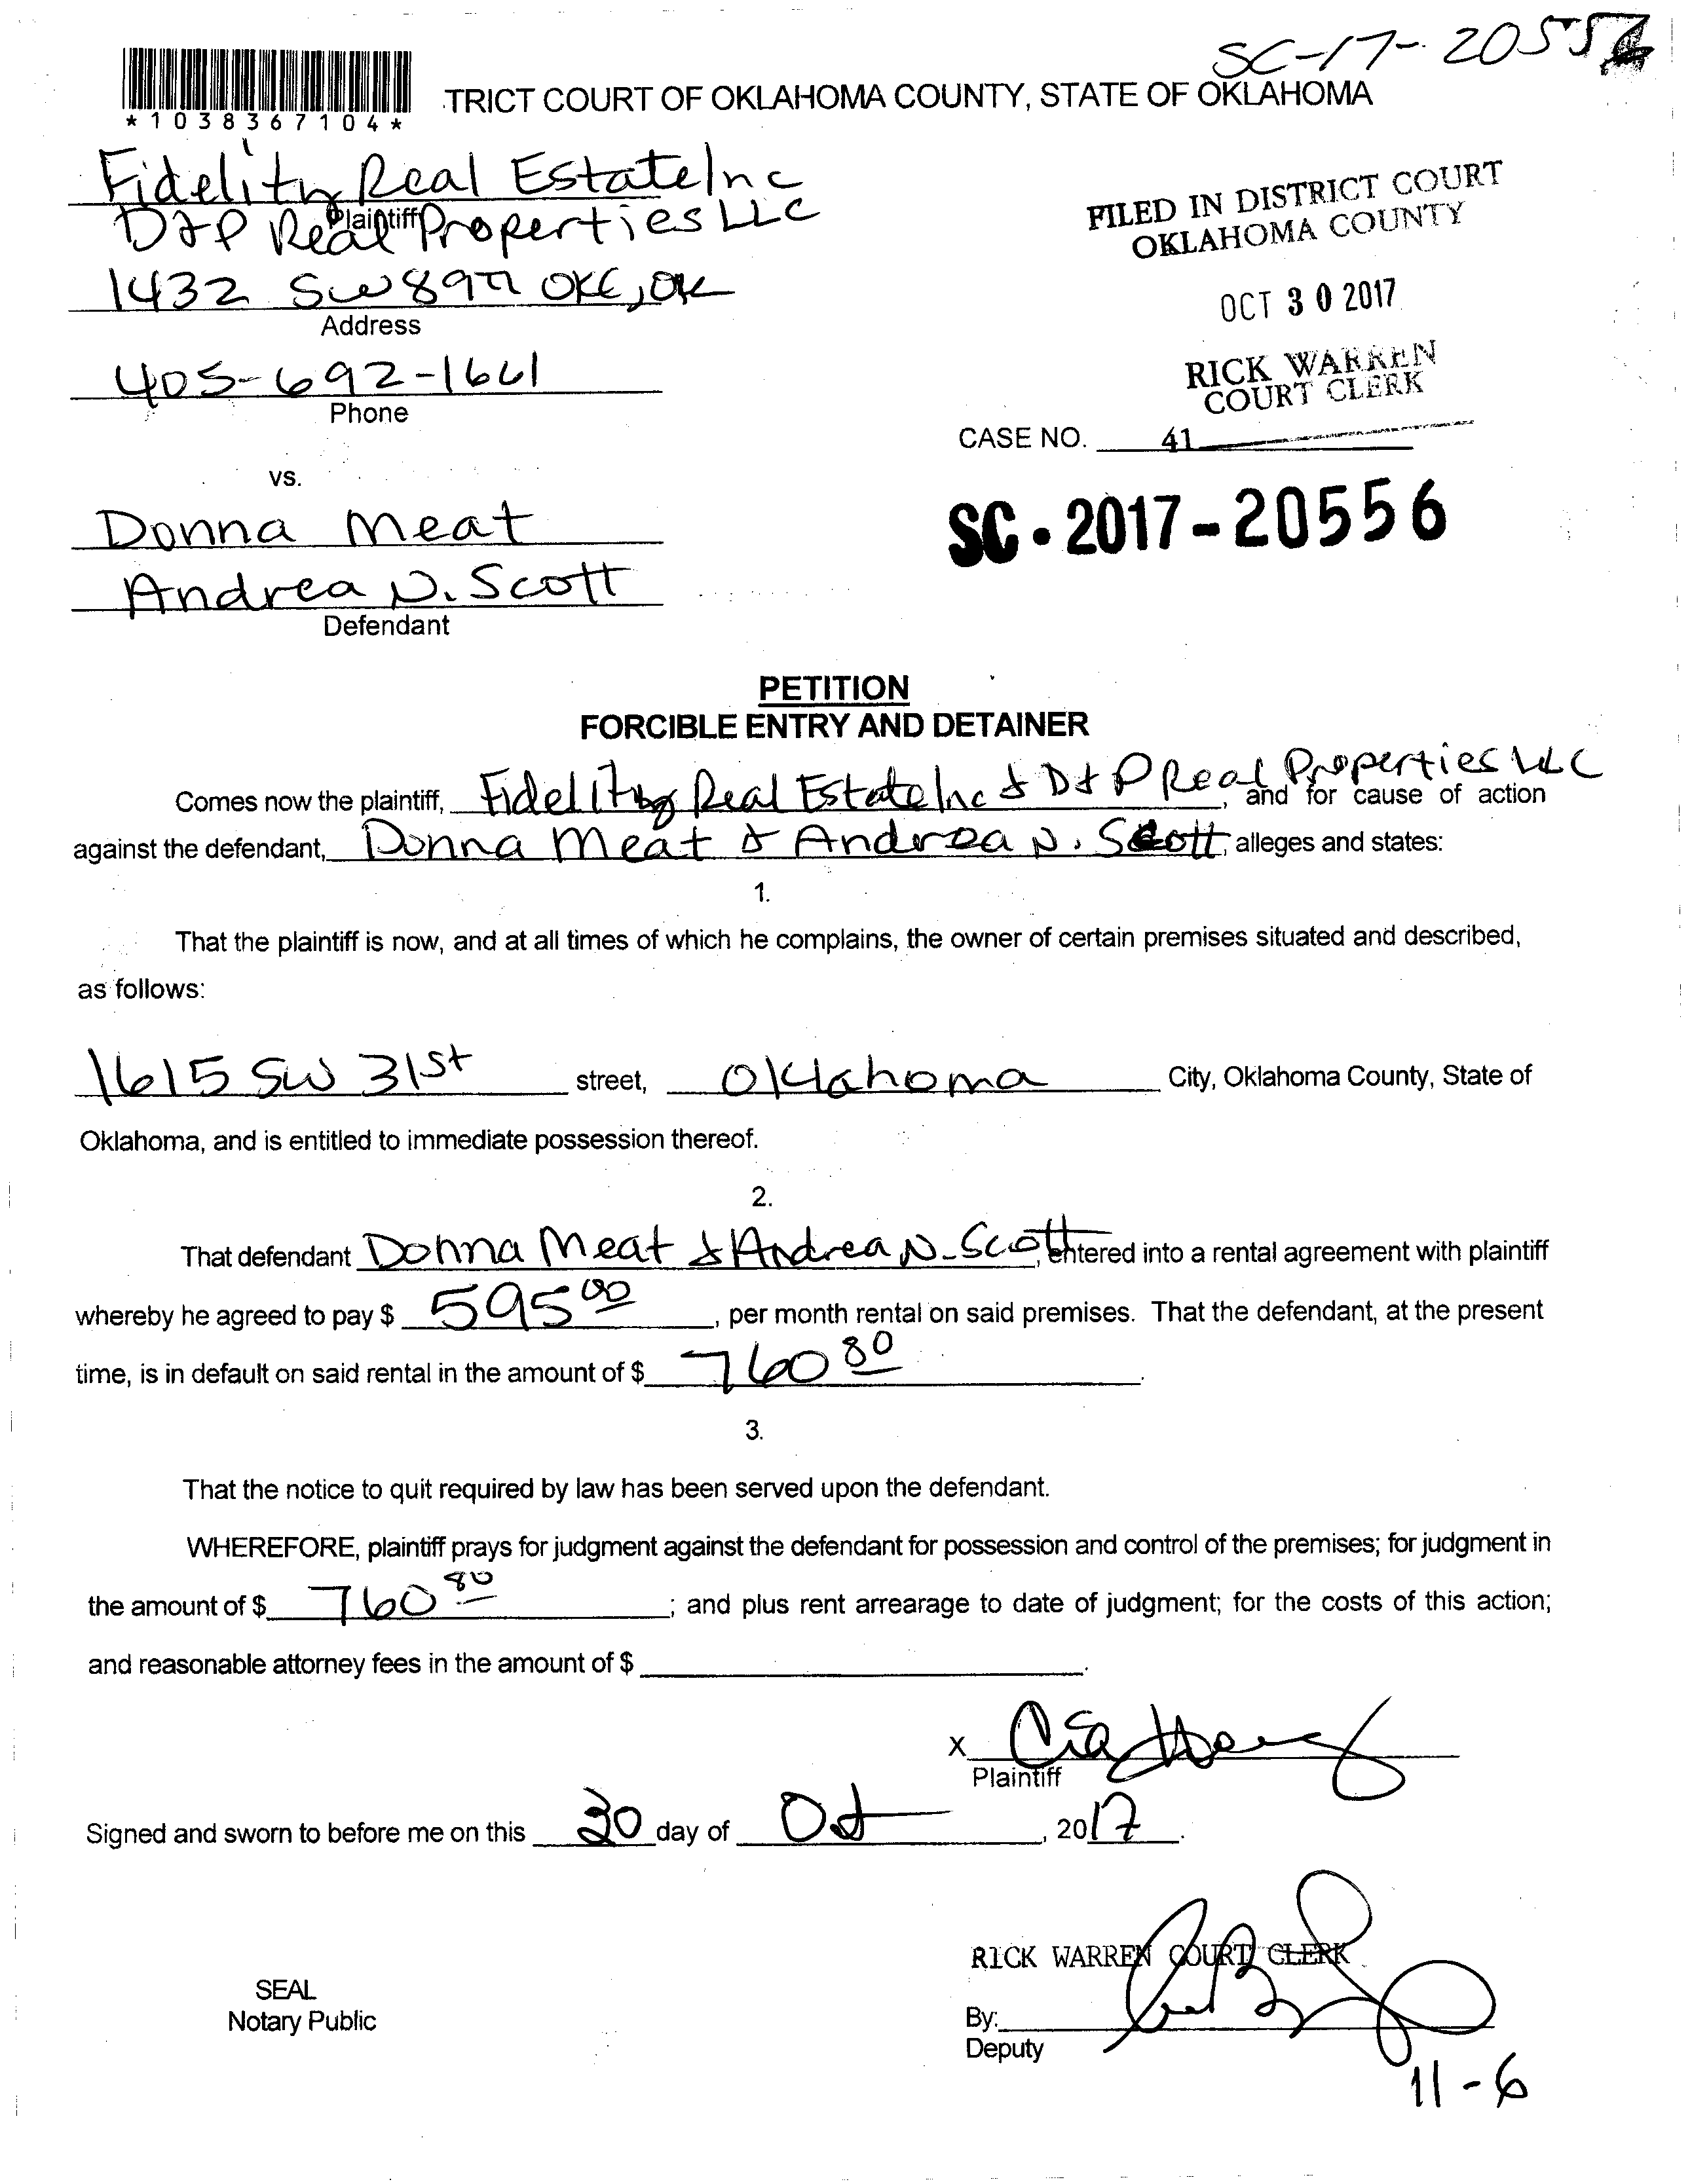 SC-17-2055
*1038367104*
TRICT COURT OF OKLAHOMA COUNTY, STATE OF OKLAHOMA
Fidelity Real Estate Inc
Plaintiff
D&P Real Properties LLC
1432 SW 89th OKC, OK
Address
405-692-1661
Phone
FILED IN DISTRICT COURT
OKLAHOMA COUNTY
OCT 30 2017
RICK WARREN
COURT CLERK
CASE NO. 41
vs.
SC-2017-20556
Donna Meat
Andrea N. Scott
Defendant
PETITION
FORCIBLE ENTRY AND DETAINER
Comes now the plaintiff, Fidelity Real Estate Inc & D&P Real Properties LLC, and for cause of action
against the defendant, Donna Meat & Andrea N. Scott, alleges and states:
1.
That the plaintiff is now, and at all times of which he complains, the owner of certain premises situated and described,
as follows:
1615 SW 31st street, Oklahoma City, Oklahoma County, State of
Oklahoma, and is entitled to immediate possession thereof.
2.
That defendant Donna Meat & Andrea N. Scott, entered into a rental agreement with plaintiff
whereby he agreed to pay $ 595 00, per month rental on said premises. That the defendant, at the present
time, is in default on said rental in the amount of $ 760 80.
3.
That the notice to quit required by law has been served upon the defendant.
WHEREFORE, plaintiff prays for judgment against the defendant for possession and control of the premises; for judgment in
the amount of $ 760 80; and plus rent arrearage to date of judgment; for the costs of this action;
and reasonable attorney fees in the amount of $ .
X
Plaintiff
Signed and sworn to before me on this 30 day of Oct, 2017.
RICK WARREN COURT CLERK
SEAL
Notary Public
By:
Deputy
11-6